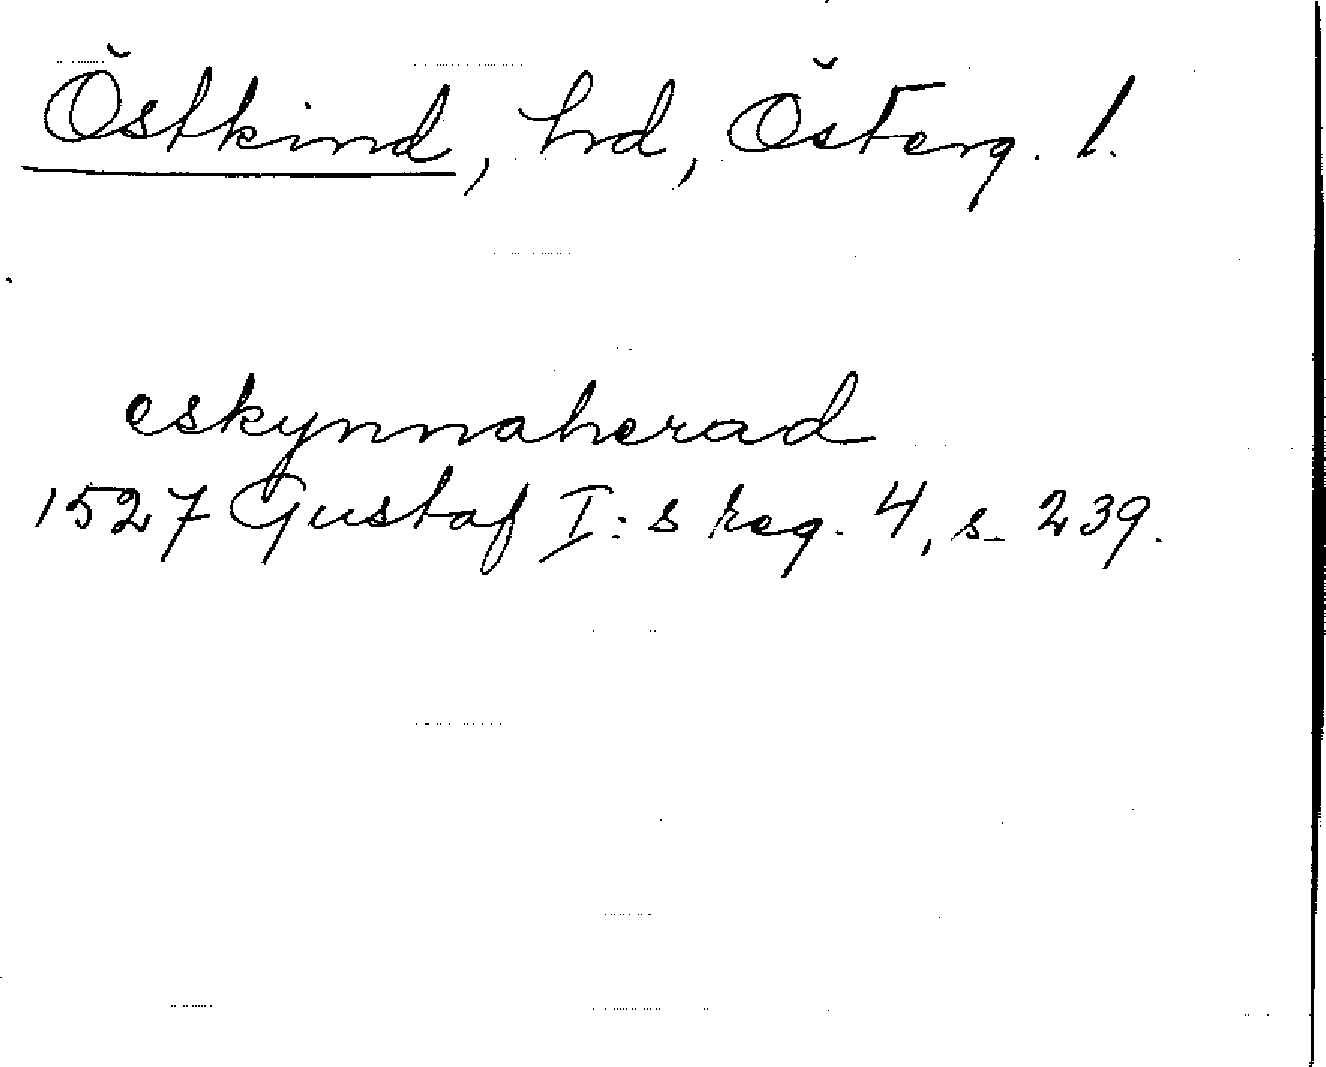 Östkind, hd, Österg. l.
eskynnaherad
1527 Gustaf I:s reg. 4, s. 239.